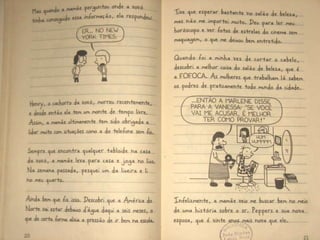 Mas quando a mamãe perguntou onde a vovó
tinha conseguido essa informação, ela respondeu:
ER... NO NEW
YORK TIMES.
Henry, o cachorro da vovó, morreu recentemente,
e desde então ela tem um monte de tempo livre.
Assim, a mamãe ultimamente tem sido obrigada a
lidar muito com situações como a do telefone sem fio.
Sempre que encontra qualquer tabloide na casa
da vovó, a mamãe leva para casa e joga no lixo.
Na semana passada, pesquei um da lixeira e li
no meu quarto.
Ainda bem que fiz isso. Descobri que a América do
Norte vai estar debaixo d'água daqui a seis meses, o
que de certa forma alivia a pressão de ir bem na escola.
20
Tive que esperar bastante no salão de beleza,
mas não me importei muito. Deu para ler meu
horóscopo e ver fotos de estrelas do cinema sem
maquiagem, o que me deixou bem entretido.
Quando foi a minha vez de cortar o cabelo,
descobri a melhor coisa do salão de beleza, que é
a FOFOCA. As mulheres que trabalham lá sabem
os podres de praticamente todo mundo da cidade.
...ENTÃO A MARLENE DISSE
PARA A VANESSA: "SE VOCÊ
VAI ME ACUSAR, É MELHOR
TER COMO PROVAR!"
Infelizmente, a mamãe veio me buscar bem no meio
de uma história sobre o sr. Peppers e sua nova
esposa, que é vinte anos mais nova que ele.
21